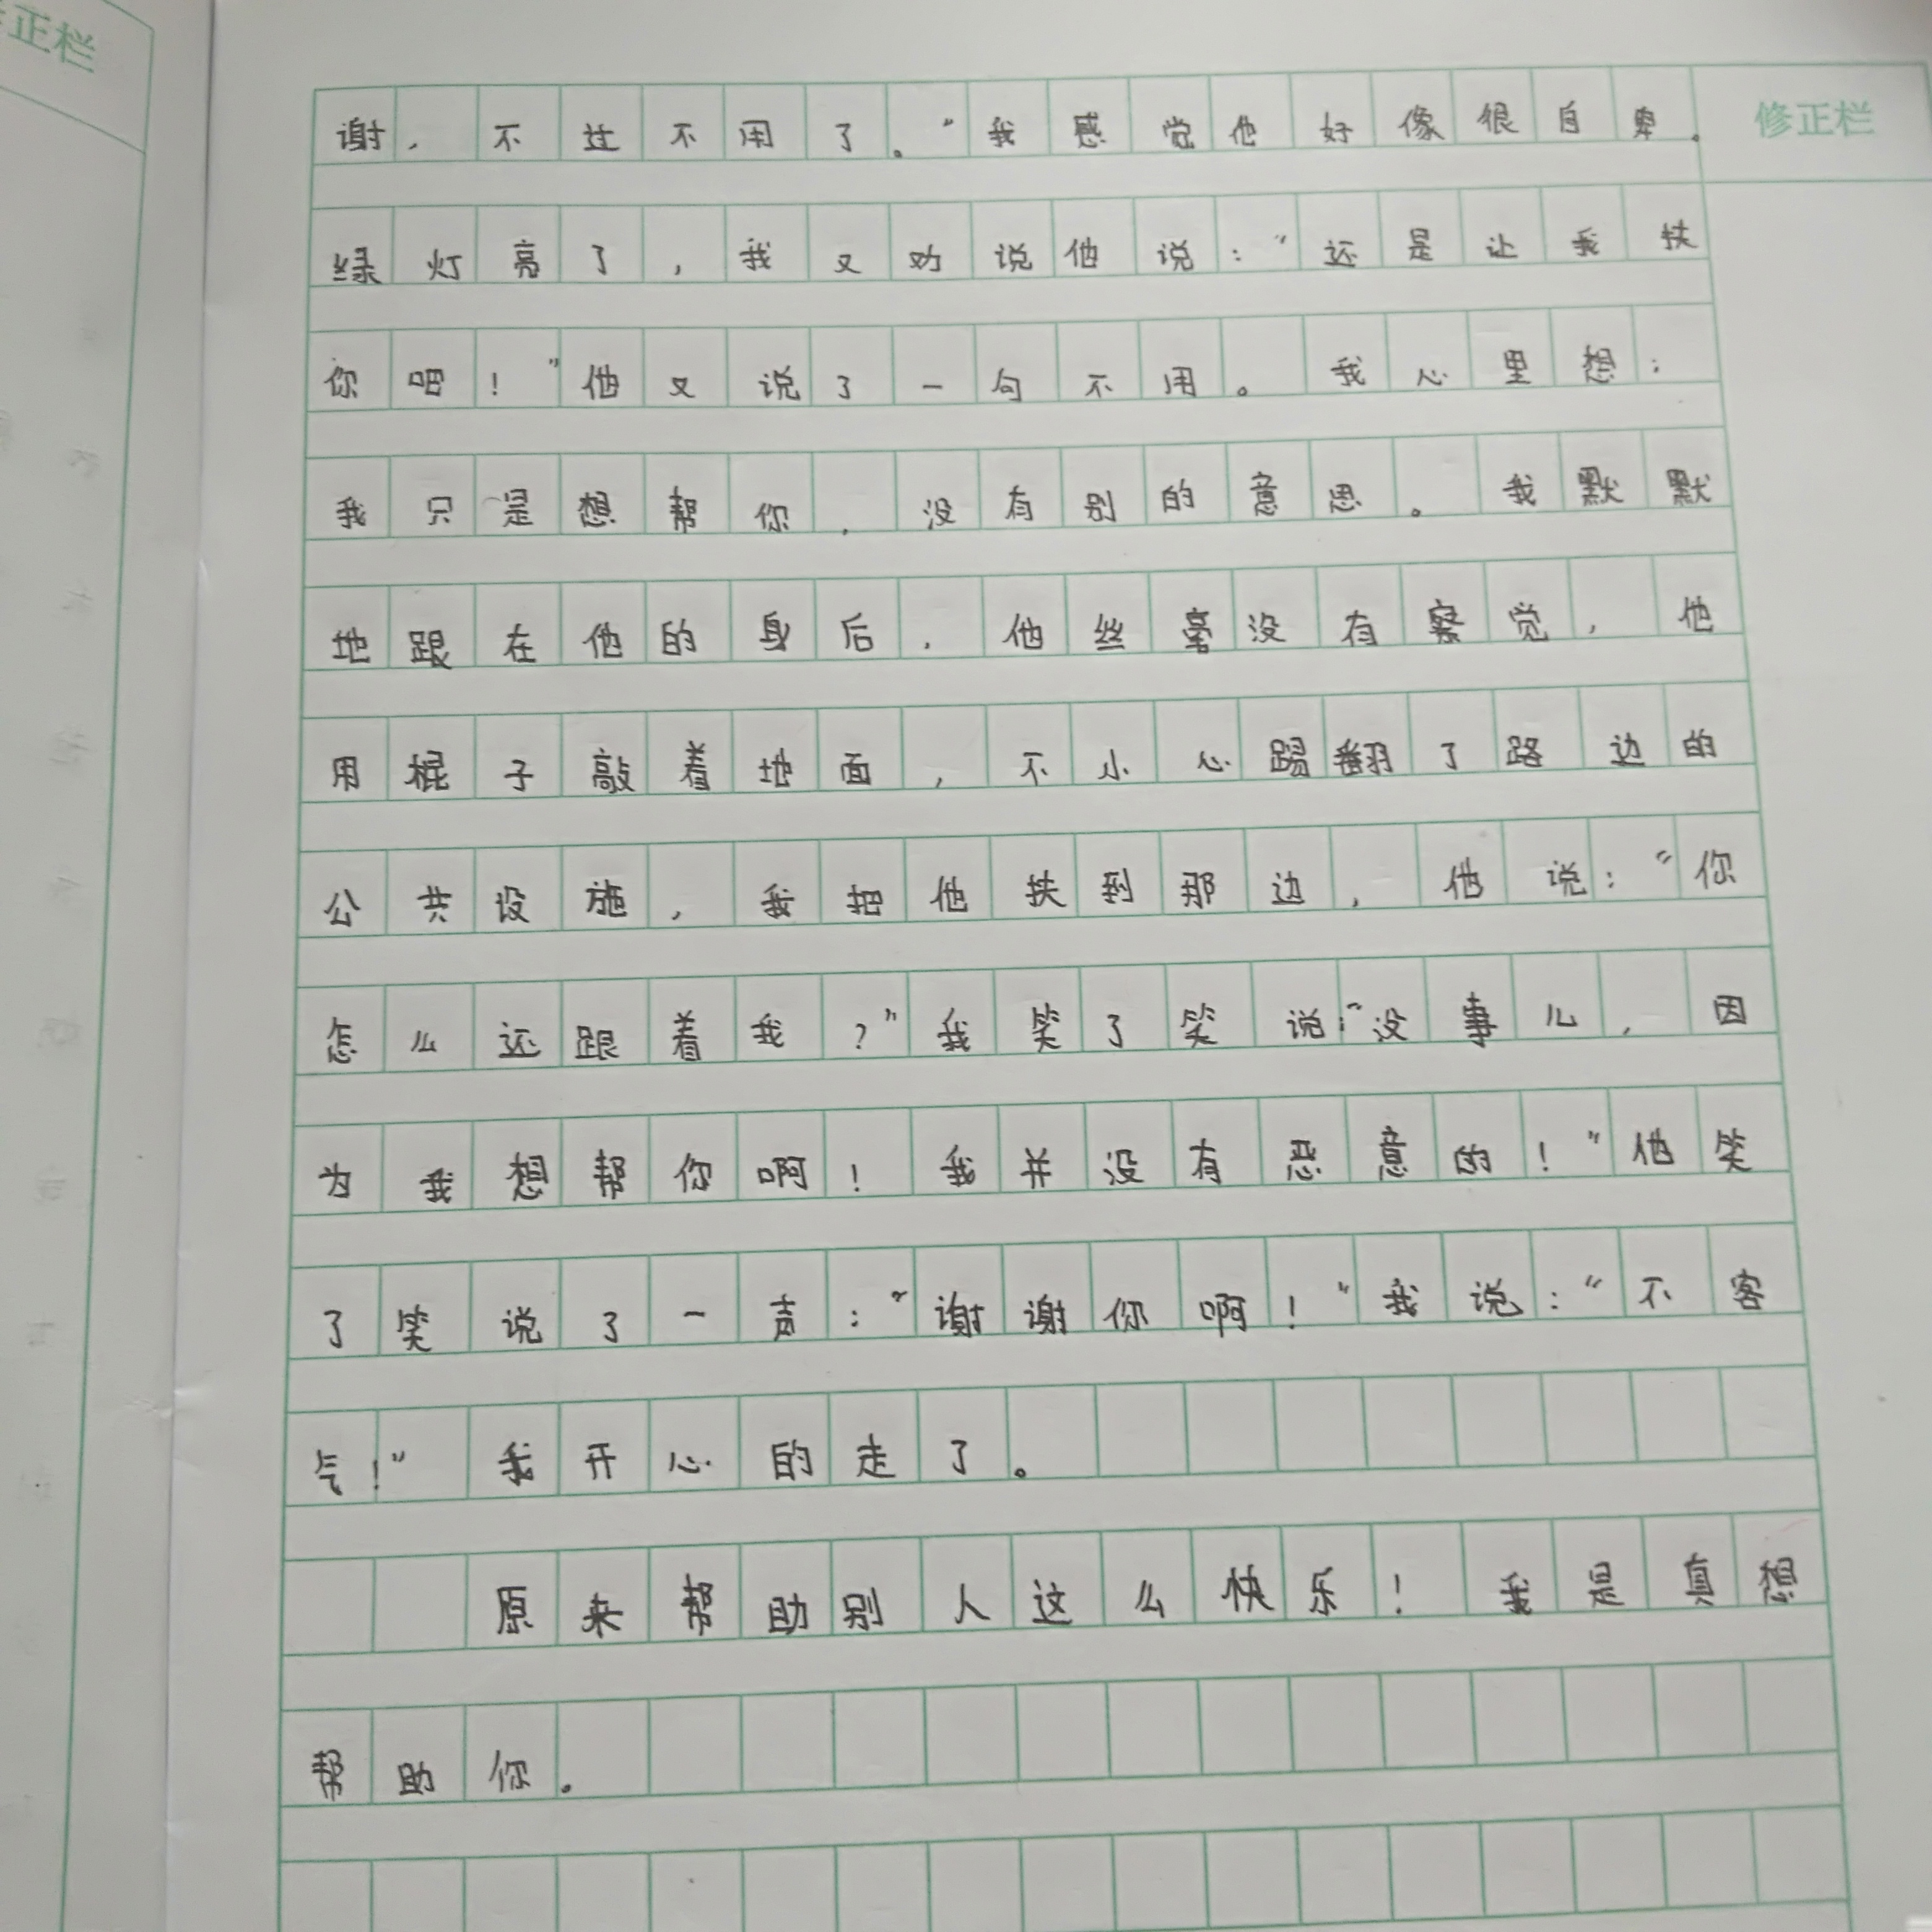 正栏
修正栏
谢，不过不用了。”我感觉他好像很自卑。
绿灯亮了，我又劝说他说：“还是让我扶
你吧！”他又说了一句不用。我心里想：
我只是想帮你，没有别的意思。我默默
地跟在他的身后，他丝毫没有察觉，他
用棍子敲着地面，不小心踢翻了路边的
公共设施，我把他扶到那边，他说：“你
怎么还跟着我？”我笑了笑说：“没事儿，因
为我想帮你啊！我并没有恶意的！”他笑
了笑说了一声：“谢谢你啊！”我说：“不客
气！”我开心的走了。
原来帮助别人这么快乐！我是真想
帮助你。